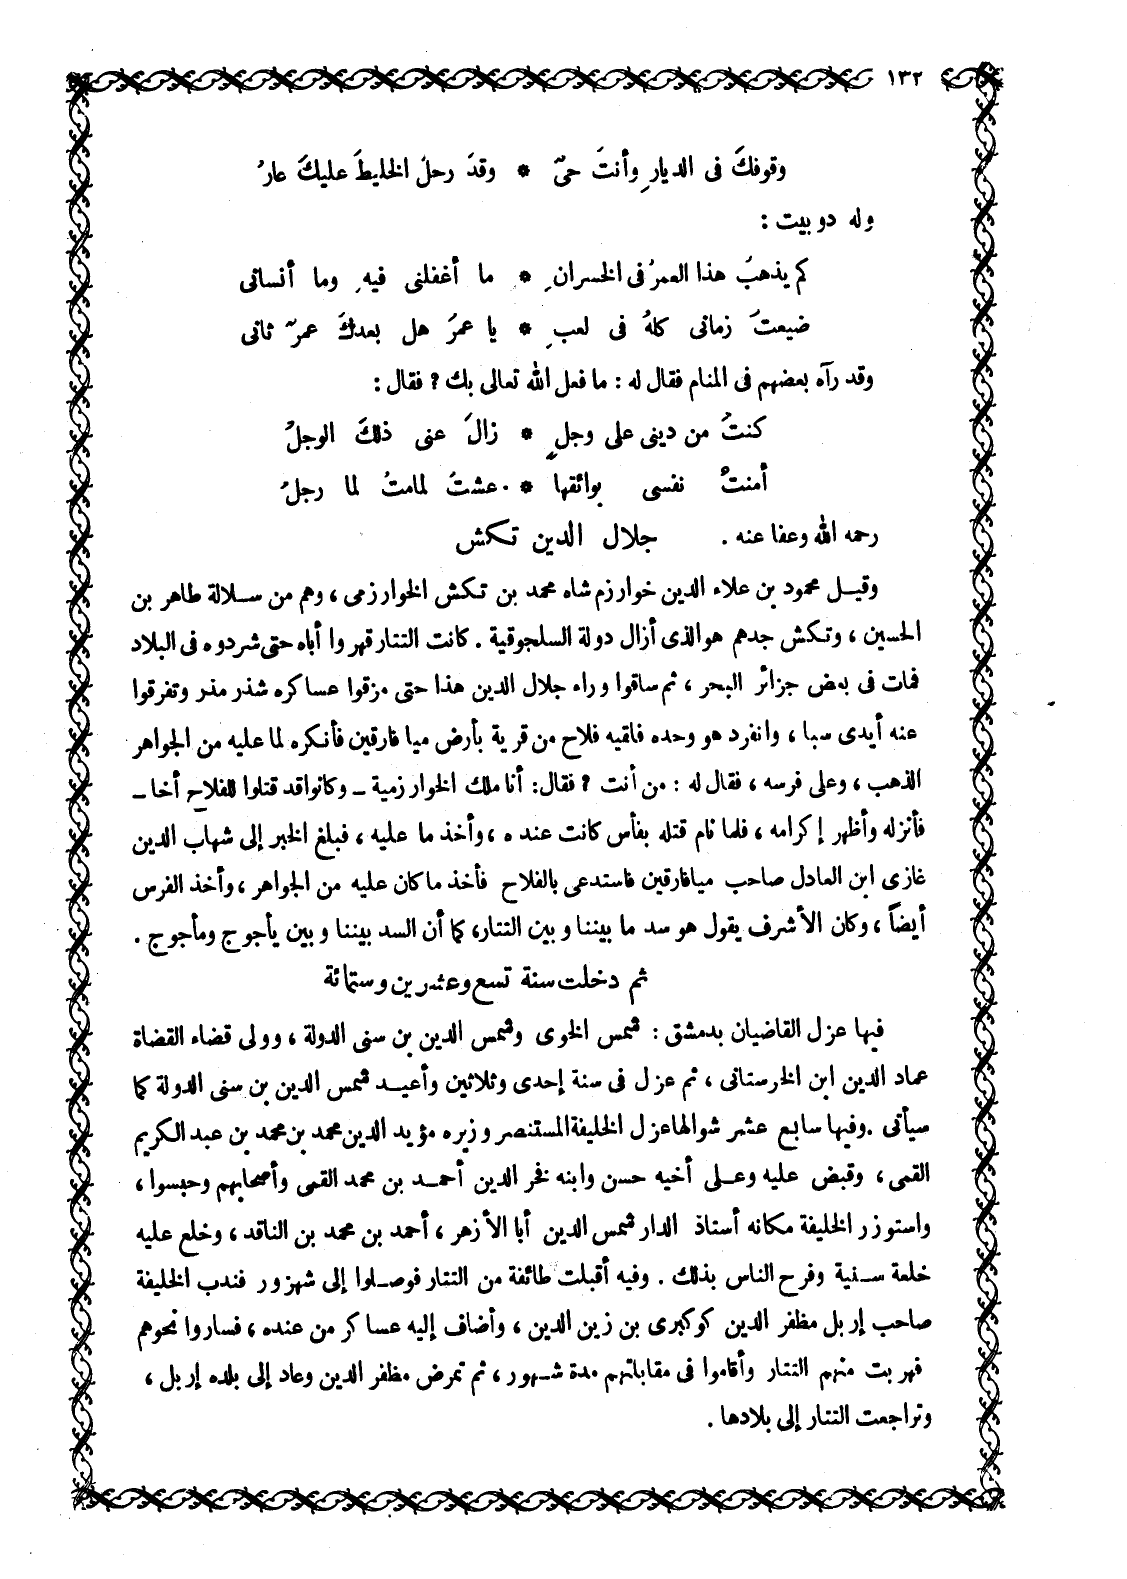 ١٣٢
وقوفكَ فى الديارِ وأنتَ حىّ * وقدَ رحلُ الخليطَ عليكَ عارُ
وله دو بيت :
كم يذهبُ هذا العمرُ فى الخسرانِ * ما أغفلنى فيهِ وما أنسانى
ضيعتُ زمانى كلهُ فى لعبٍ * يا عمرَ هل بعدكَ عمرّ ثانى
وقد رآه بعضهم فى المنام فقال له : ما فعل الله تعالى بك ? فقال :
كنتُ من دينى على وجلٍ * زالَ عنى ذلكَ الوجلُ
أمنتْ نفسى بوائقها * عشتُ لمامتُ لما رجلُ
رحمه الله وعفا عنه . جلال الدين تكش
وقيل محمود بن علاء الدين خوارزم شاه محمد بن تكش الخوارزمى ، وهم من سلالة طاهر بن
الحسين ، وتكش جدهم هو الذى أزال دولة السلجوقية . كانت التتار قهروا أباه حتى شردوه فى البلاد
فمات فى بعض جزائر البحر ، ثم ساقوا وراء جلال الدين هذا حتى مزقوا عساكره شذر مذر وتفرقوا
عنه أيدى سبا ، وانفرد هو وحده فلقيه فلاح من قرية بأرض ميا فارقين فأنكره لما عليه من الجواهر
الذهب ، وعلى فرسه ، فقال له : من أنت ? فقال: أنا ملك الخوارزمية ـ وكانوا قد قتلوا للفلاح أخا ـ
فأنزله وأظهر إكرامه ، فلما نام قتله بفأس كانت عنده ، وأخذ ما عليه ، فبلغ الخبر إلى شهاب الدين
غازى ابن العادل صاحب ميافارقين فاستدعى بالفلاح فأخذ ما كان عليه من الجواهر ، وأخذ الفرس
أيضاً ، وكان الأشرف يقول هو سد ما بيننا وبين التتار، كما أن السد بيننا وبين يأجوج ومأجوج .
ثم دخلت سنة تسع وعشرين وستمائة
فيها عزل القاضيان بدمشق : شمس الخوى وشمس الدين بن سنى الدولة ، وولى قضاء القضاة
عماد الدين ابن الخرستانى ، ثم عزل فى سنة إحدى وثلاثين وأعيد شمس الدين بن سنى الدولة كما
سيأتى . وفيها سابع عشر شوالها عزل الخليفة المستنصر وزيره مؤيد الدين محمد بن محمد بن عبد الكريم
القمى ، وقبض عليه وعلى أخيه حسن وابنه فخر الدين أحمد بن محمد القمى وأصحابهم وحبسوا ،
واستوزر الخليفة مكانه أستاذ الدار شمس الدين أبا الأزهر ، أحمد بن محمد بن الناقد ، وخلع عليه
خلعة سنية وفرح الناس بذلك . وفيه أقبلت طائفة من التتار فوصلوا إلى شهزور فندب الخليفة
صاحب إربل مظفر الدين كوكبرى بن زين الدين ، وأضاف إليه عساكر من عنده ، فساروا نحوهم
فهربت منهم التتار وأقاموا فى مقابلتهم مدة شهور ، ثم تمرض مظفر الدين وعاد إلى بلده إربل ،
وتراجعت التتار إلى بلادها .